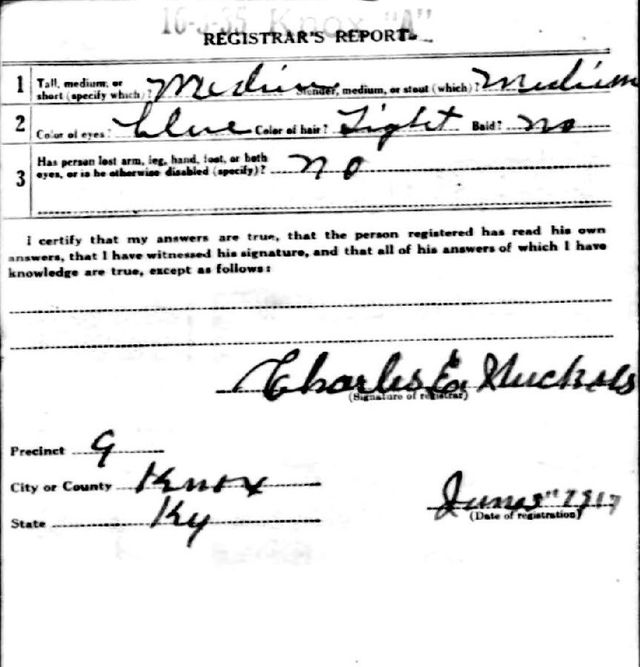 16-3-35 Knox "A"
REGISTRAR'S REPORT
1 Tall, medium, or short (specify which)? Medium Slender, medium, or stout (which)? Medium
2 Color of eyes? blue Color of hair? Light Bald? no
3 Has person lost arm, leg, hand, foot, or both eyes, or is he otherwise disabled (specify)? no
I certify that my answers are true, that the person registered has read his own
answers, that I have witnessed his signature, and that all of his answers of which I have
knowledge are true, except as follows:
Charles E Nuckols
(Signature of registrar)
Precinct 9
City or County Knox
State Ky
June 5" 1917
(Date of registration)